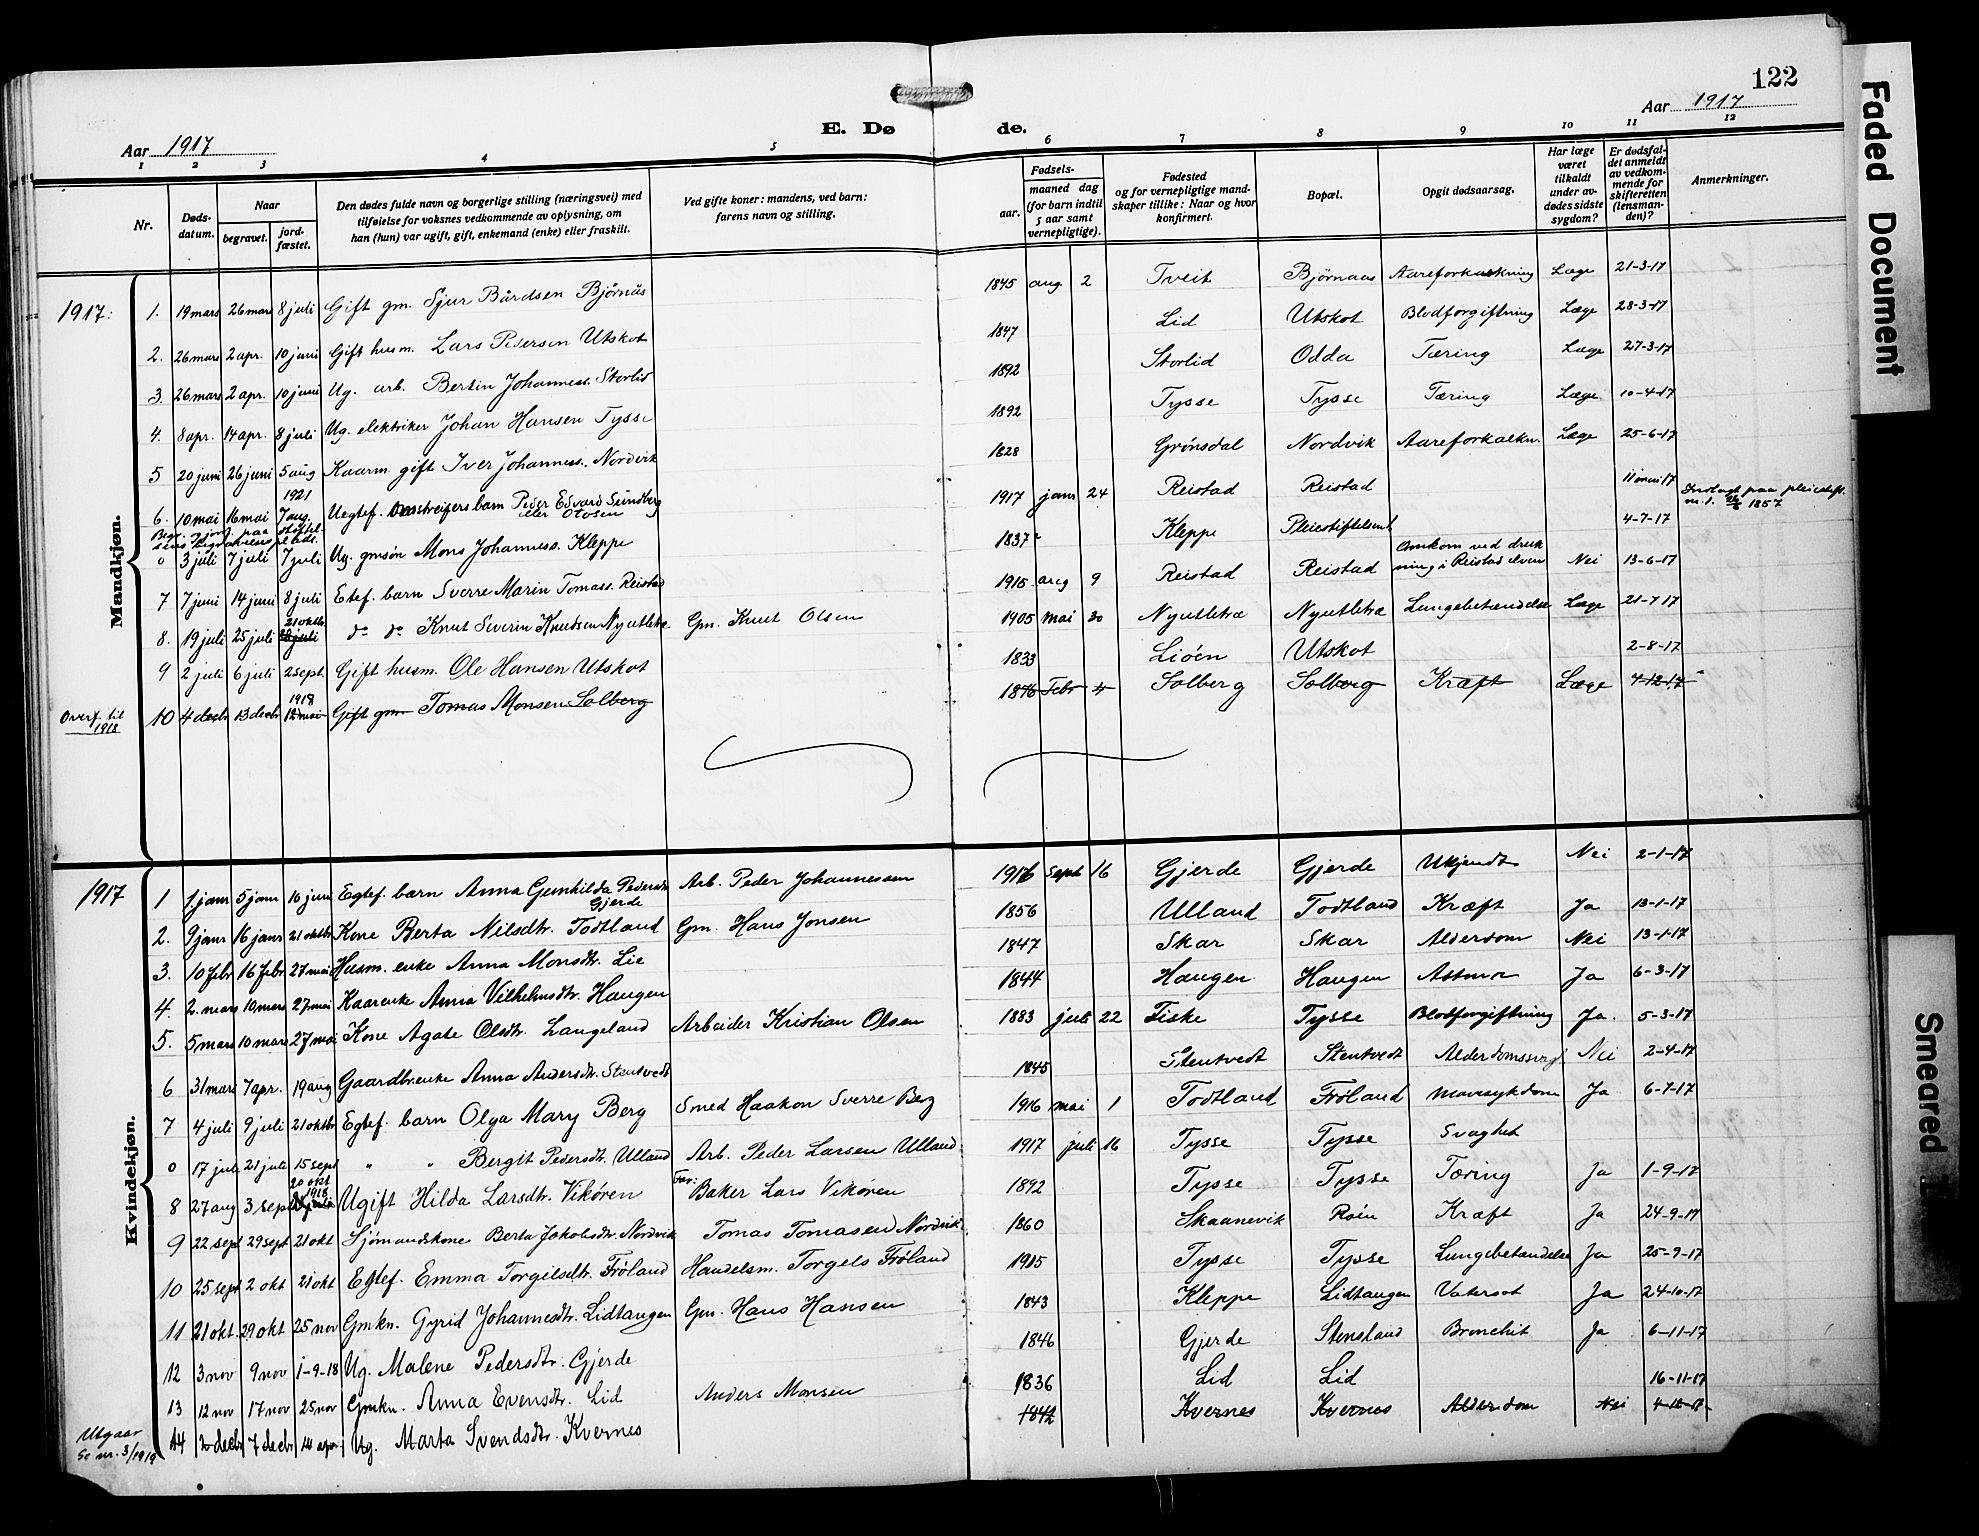 122
Aar 1917
E. Dø de.
Aar 1917
1 2 3 4 5 6 7 8 9 10 11 12
Nr.
Døds-
datum.
Naar
begravet.
jord-
fæstet.
Den dødes fulde navn og borgerlige stilling (næringsvei) med
tilføielse for voksnes vedkommende av oplysning, om
han (hun) var ugift, gift, enkemand (enke) eller fraskilt.
Ved gifte koner: mandens, ved barn:
farens navn og stilling.
Fødsels-
aar.
maaned dag
(for barn indtil
5 aar samt
vernepligtige).
Fødested
og for vernepligtige mand-
skaper tillike: Naar og hvor
konfirmert.
Bopæl.
Opgit dødsaarsag.
Har læge
været
tilkaldt
under av-
dødes sidste
sygdom?
Er dødsfal-
det anmeldt
av vedkom-
mende for
skifteretten
(lensman-
den)?
Anmerkninger.
Mandkjøn.
1917:
1. 19 mars 26 mars 8 juli Gift gm. Sjur Bårdsen Bjørnås 1845 aug 2 Tveit Bjørnaas Aareforkalkning Læge 21-3-17
2. 26 mars 2 apr. 10 juni Gift husm. Lars Pedersen Utskot 1847 Lid Utskot Blodforgiftning Læge 28-3-17
3. 26 mars 2 apr. 10 juni Ug. arb. Bertin Johanness. Storlid 1892 Storlid Odda Tæring Læge 27-3-17
4. 8 apr. 14 apr. 8 juli Ug. elektriker Johan Hansen Tysse 1892 Tysse Tysse Tæring Læge 10-4-17
5 20 juni 26 juni 5 aug Kaarm. gift Iver Johanness. Nordvik 1828 Grønsdal Nordvik Aareforkalkn. Læge 25-6-17
1921
6. 10 mai 16 mai 7 aug. Uegtef. Omstreifers barn Peder Edvard Sundberg
eller Olsen 1917 janr 24 Reistad Reistad 11 mai 17
0 3 juli 7 juli 7 juli Ug. gmsøn Mons Johanness. Kleppe 1837 Kleppe Pleiestiftelsen 4-7-17 Indlagt paa pleiestift.
nr. 1. 1857
7 7 juni 14 juni 8 juli Etef. barn Sverre Marin Tomass. Reistad 1915 aug 9 Reistad Reistad Omkom ved druk
ning i Reistad elven Nei 13-6-17
21 oktb
8. 19 juli 25 juli 8 juli do do Knut Severin Knudsen Nyutletra Gm. Knut Olsen 1905 mai 30 Nyutletra Nyutletra Lungebetændelse Læge 21-7-17
9 2 juli 6 juli 2 sept. Gift husm. Ole Hansen Utskot 1833 Lioen Utskot 2-8-17
1918
Overf. til
1918
10 4 decbr 13 decbr 12 mai Gift gm. Tomas Monsen Solberg 1876 Febr 4 Solberg Solberg Kræft Læge 4-12-17
Kvindekjøn.
1917
1 1 janr 5 janr 10 juni Egtef. barn Anna Gunhilda Pedersdtr
Gjerde Arb. Peder Johannessen 1916 sept 16 Gjerde Gjerde Ukjendt Nei 2-1-17
2. 9 janr 16 janr 21 oktbr Kone Berta Nilsdtr. Todtland Gm. Hans Jonsen 1856 Ulland Todtland Kræft Ja 13-1-17
3. 10 febr 16 febr 27 mai Husm. enke Anna Monsdtr. Lie 1847 Skar Skar Alderdom Nei 13-1-17
4. 2 mars 10 mars 27 mai Kaarenke Anna Vilhelmsdtr. Haugen 1844 Haugen Haugen Astma Ja 6-3-17
5. 5 mars 10 mars 27 mai Kone Agate Olsdtr. Langeland Arbeider Kristian Olsen 1883 juli 22 Fiske Tysse Blodforgiftning Ja. 5-3-17
6 31 mars 7 apr. 19 aug Gaardbr.enke Anna Andersdtr. Stentvedt 1845 Stentvedt Stentvedt Alderdomssvagh Nei 2-4-17
7 4 juli 9 juli 21 oktbr Egtef. barn Olga Mary Berg Smed Haakon Sverre Berg 1916 mai 1 Todtland Frøland Mavesykdom Ja 6-7-17
0 17 juli 21 juli 15 sept " " Bergit Pedersdtr. Ulland Arb. Peder Larsen Ulland 1917 juli 16 Tysse Tysse Svaghet
20 okt
1918
8 27 aug 3 sept Ugift Hilda Larsdtr. Vikøren Far: Baker Lars Vikøren 1892 Tysse Tysse Tæring Ja 1-9-17
9 22 sept 29 sept 21 okt Sjømandskone Berta Jakobsdtr. Nordvik Tomas Tomasen Nordvik 1860 Skaanevik Roén Kræft Ja 24-9-17
10 25 sept 2 okt 21 okt Egtef. Emma Torgilsdtr. Frøland Handelsm. Torgels Frøland 1915 Tysse Tysse Lungebetændelse Ja 25-9-17
11 21 okt. 29 okt 25 nov Gmkn. Gyrid Johannesdtr. Lidtaugen Gm. Hans Hansen 1843 Kleppe Lidtaugen Vatersot Ja 24-10-17
12 3 nov 9 nov 1-9-18 Ug. Malene Pedersdtr. Gjerde 1846 Gjerde Stensland Bronchit Ja 6-11-17
13 12 nov 17 nov 25 nov Gmkn. Anna Evensdtr. Lid Anders Monsen 1836 Lid Lid 16-11-17
Utgaar
Se nr. 3/1919
14 2 decbr 7 decbr 14 apr Ug. Marta Svendsdtr. Kvernes 1842 Kvernes Kvernes Alderdom Nei 4-12-17
Faded Document
Smeared